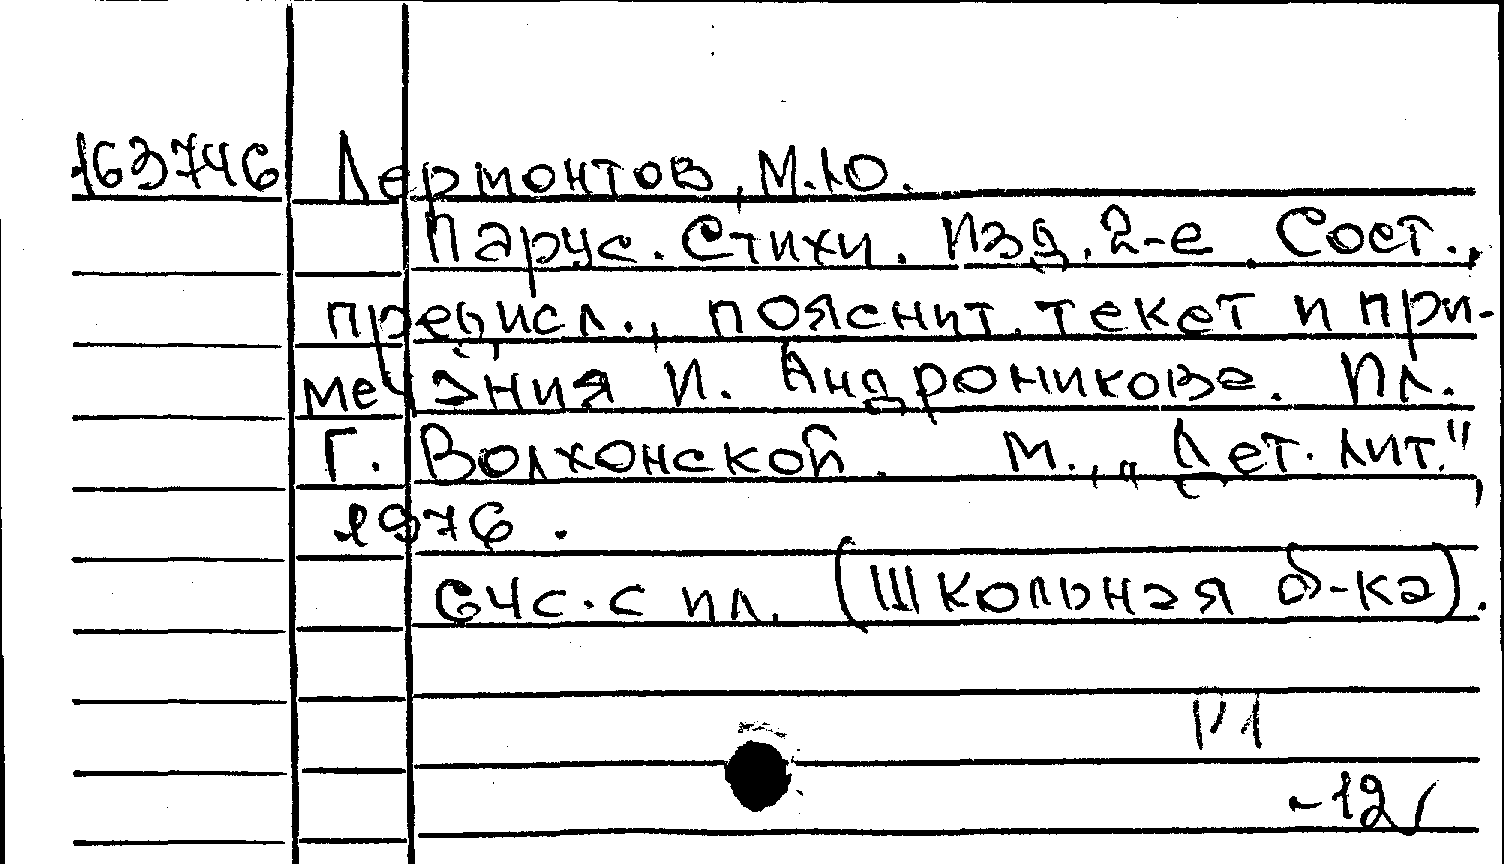 163746 Лермонтов, М.Ю.
Парус. Стихи. Изд. 2-е. Сост.,
предисл., пояснит. текст и при-
мечания И. Андроникова. Ил.
Г. Волхонской. М., „Дет. лит."
1976.
64с. с ил. (Школьная б-ка).
Р1
-12